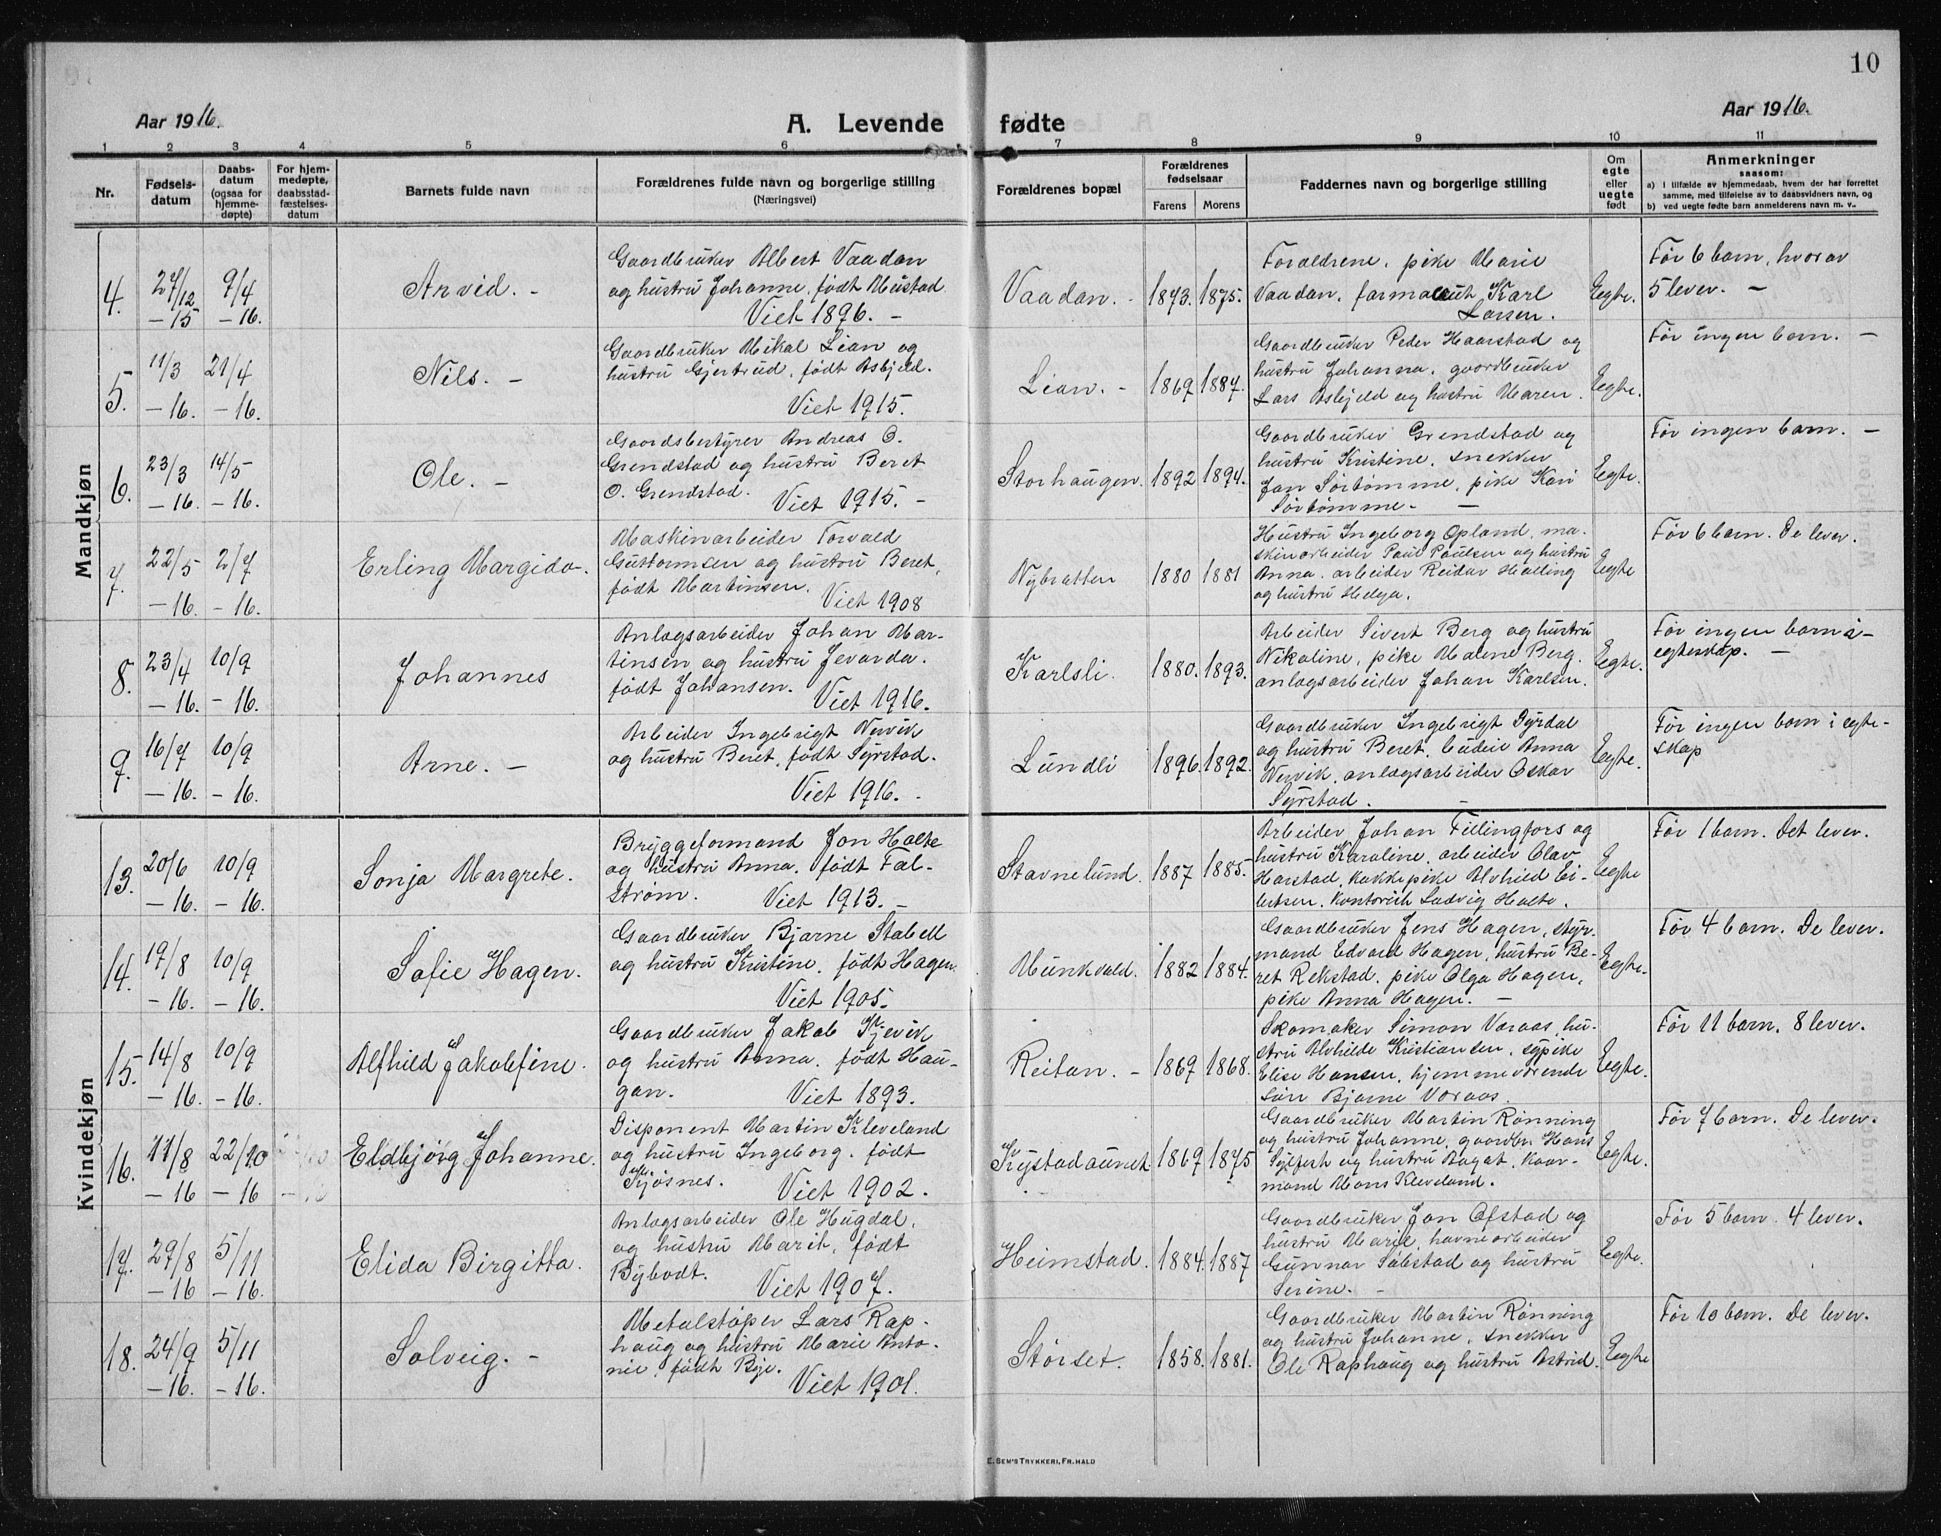 10
Aar 1916.
A. Levende fødte
Aar 1916.
1 2 3 4 5 6 7 8 9 10 11
Nr.
Fødsels-
datum
Daabs-
datum
(ogsaa for
hjemme-
døpte)
For hjem-
medøpte,
daabsstad-
fæstelses-
datum
Barnets fulde navn
Forældrenes fulde navn og borgerlige stilling
(Næringsvei)
Forældrenes bopæl
Forældrenes
fødselsaar
Farens Morens
Faddernes navn og borgerlige stilling
Om
egte
eller
uegte
født
Anmerkninger
saasom:
a) i tilfælde av hjemmedaab, hvem der har forrettet
samme, med tilføielse av to daabsvidners navn, og
b) ved uegte fødte barn anmelderens navn m. v..
Mandkjøn
4.
27/12
-15
9/4
-16.
Arvid. -
Gaardbruker Albert Vaadan
og hustru Johanne, født Mustad
Viet 1896. -
Vaadan. -
1873. 1875.
Forældrene, pike Marie
Vaadan, farmaceut Karl
Larsen.
Egte.
Før 6 barn, hvorav
5 lever. -
5.
11/3
-16.
21/4
-16.
Nils. -
Gaardbruker Mikal Lian og
hustru Gjertrud, født Asbjeld.
Viet 1915.
Lian. -
1867 1887.
Gaardbruker Peder Haarstad og
hustru Johanna, gaardbruker
Lars Asbjeld og hustru Maren.
Egte.
Før ingen barn. -
6.
23/3
-16.
14/5
-16.
Ole. -
Gaardsbestyrer Andreas O.
Grendstad og hustru Beret
O. Grendstad.
Viet 1915. -
Storhaugen.
1892 1894.
Gaardbruker Grendstad og
hustru Kristine, snekker
Jon Sørtømme, pike Kari
Sørtømme. -
Egte.
Før ingen barn. -
7.
22/5
-16.
2/7
-16.
Erling Margido.
Maskinarbeider Torvald
Guttormsen og hustru Beret,
født Martinsen.
Viet 1908
Nybratten
1880 1881
Hustru Ingeborg Opland, ma-
skinarbeider Paul Paulsen og hustru
Anna, arbeider Reidar Halling
og hustru Helga.
Egte
Før 6 barn. De lever.
8.
23/4
-16.
10/9
-16.
Johannes
Anlægsarbeider Johan Mar-
tinsen og hustru Jevarda,
født Johansen.
Viet 1916.
Karlsli.
1880. 1893.
Arbeider Sivert Berg og hustru
Nikoline, pike Malene Berg.
anlægsarbeider Johan Karlsen.
Egte.
Før ingen barn i
egteskap. -
9.
16/7
-16.
10/9
-16.
Arne. -
Arbeider Ingebrigt Nervik
og hustru Beret, født Syrstad.
Viet 1916. -
Lundli
1896. 1892.
Gaardbruker Ingebrigt Dyrdal
og hustru Beret, budeie Anna
Nervik, anlægsarbeider Oskar
Syrstad. -
Egte.
Før ingen barn i egte-
skap
Kvindekjøn
13.
20/6
-16.
10/9
-16.
Sonja Margrete.
Bryggeformand Jon Holte
og hustru Anna, født Fal-
strøm.
Viet 1913. -
Stavnelund.
1887 1885.
Arbeider Johan Fillingfors og
hustru Karoline, arbeider Olav
Harstad, kokkepike Alvhild Ei-
lertsen, kontorist Ludvig Holte.
Egte
Før 1 barn. Det lever.
14.
17/8
-16.
10/9
-16.
Sofie Hagen.
Gaardbruker Bjarne Stabell
og hustru Kristine, født Hagen
Viet 1905.
Munkvold.
1882 1884.
Gaardbruker Jens Hagen, styr-
mand Edvard Hagen, hustru Be-
ret Rekstad, pike Olga Hagen,
pike Anna Hagen. -
Egte.
Før 4 barn. De lever.
15.
14/8
-16.
10/9
-16.
Alfhild Jakobfine.
Gaardbruker Jakob Kjevik
og hustru Anna, født Hau-
gan.
Viet 1893.
Reitan. -
1867 1868.
Skomaker Simon Voraas, hu-
stru Alvhilde Kristiansen, sypike
Elise Hansen, hjemmeværende
søn Bjarne Voraas.
Egte.
Før 11 barn. 8 lever.
16.
11/8
-16
22/10
-16
Eldbjørg Johanne.
Disponent Martin Kleveland
og hustru Ingeborg, født
Kjøsnes.
Viet 1902.
Krystadaunet
1867 1875
Gaardbruker Martin Rønning
og hustru Johanne, gaardbr. Hans
Sylfest og hustru Bagat, kaar-
mand Mons Kleveland.
Egte.
Før 7 barn. De lever.
17.
27/8
-16
5/11
-16.
Elida Birgitta.
Anlægsarbeider Ole Hugdal,
og hustru Marit, født
Bybodt.
Viet 1907.
Heimstad.
1884. 1887
Gaardbruker Jon Ofstad og
hustru Marie, havnearbeider
Gunnar Solstad og hustru
Serine. -
Egte.
Før 5 barn. 4 lever.
18.
24/9
-16.
5/11
-16.
Solveig. -
Metalstøper Lars Rap-
haug og hustru Marie Anto-
nie, født Bye.
Viet 1901.
Størset.
1858. 1881.
Gaardbruker Martin Rønning
og hustru Johanne, snekker
Ole Raphaug og hustru Astrid.
Egte
Før 10 barn. De lever.
E. SEM'S TRYKKERI, FR. HALD